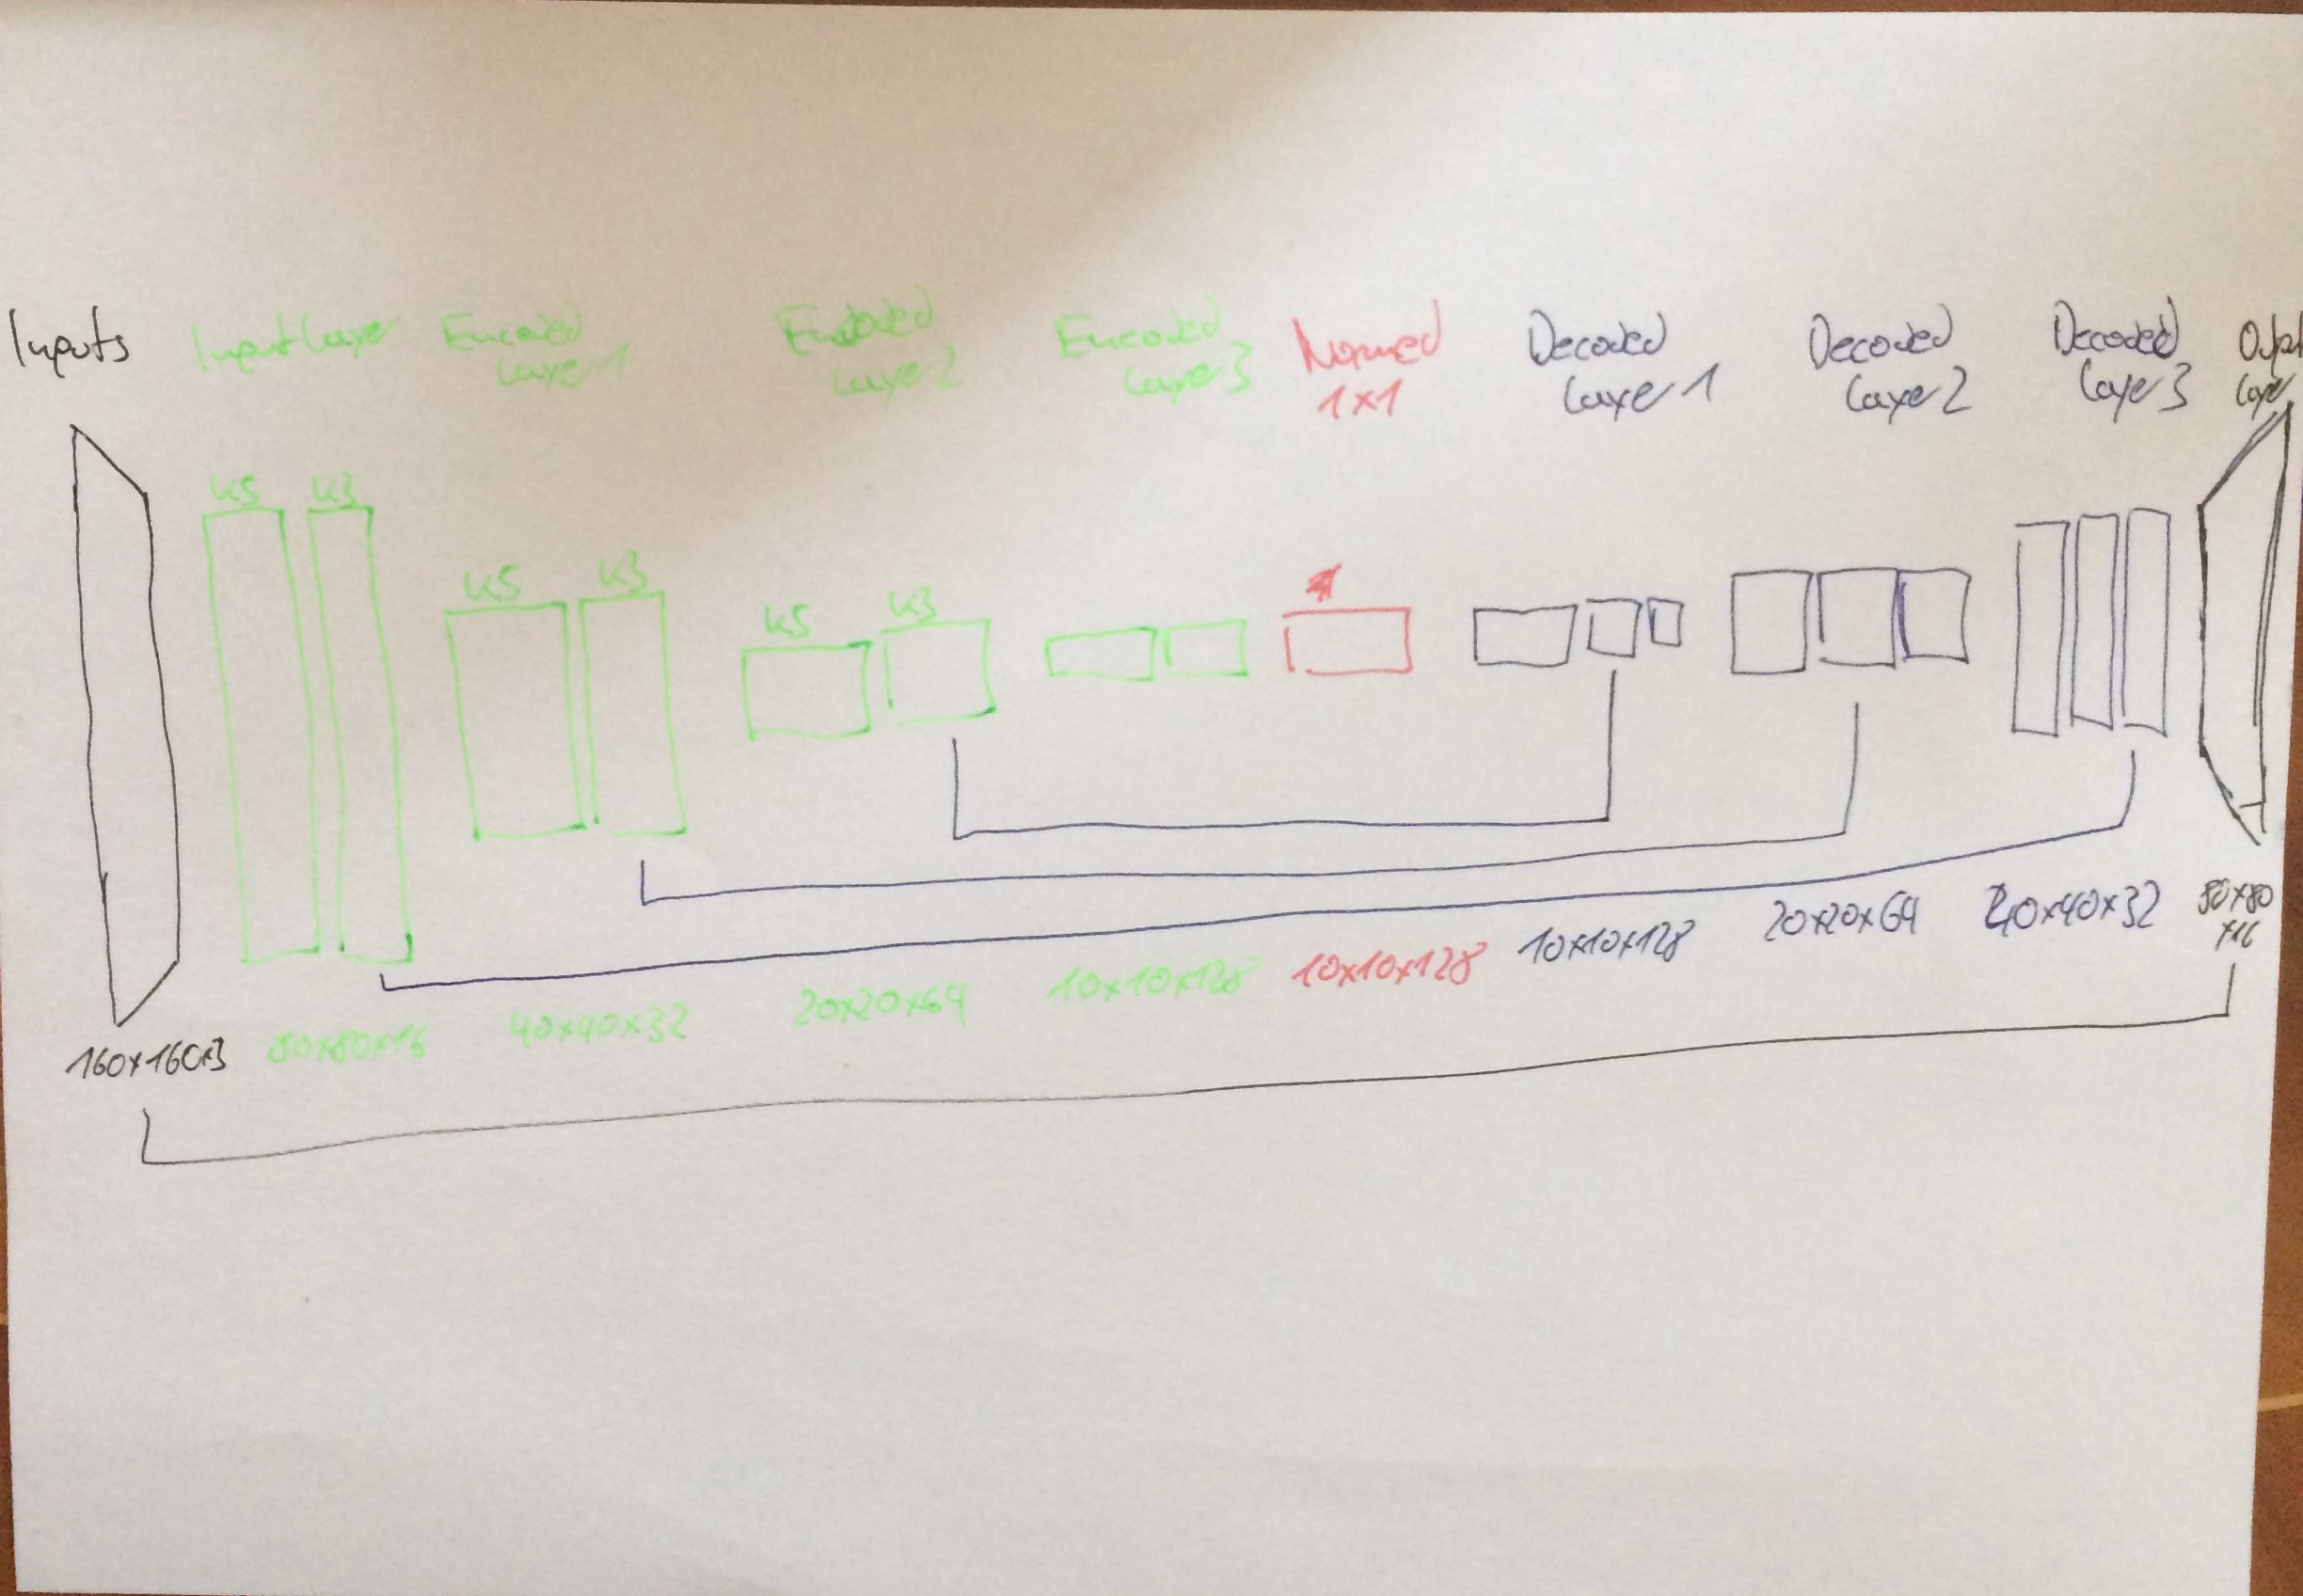 Inputs
Input Layer
Encoded
Layer 1
Encoded
Layer 2
Encoded
Layer 3
Normed
1x1
Decoded
Layer 1
Decoded
Layer 2
Decoded
Layer 3
Output
Layer
K5
K3
K5
K3
K5
K3
160x160x3
80x80x16
40x40x32
20x20x64
10x10x128
10x10x128
10x10x128
20x20x64
40x40x32
80x80
x16